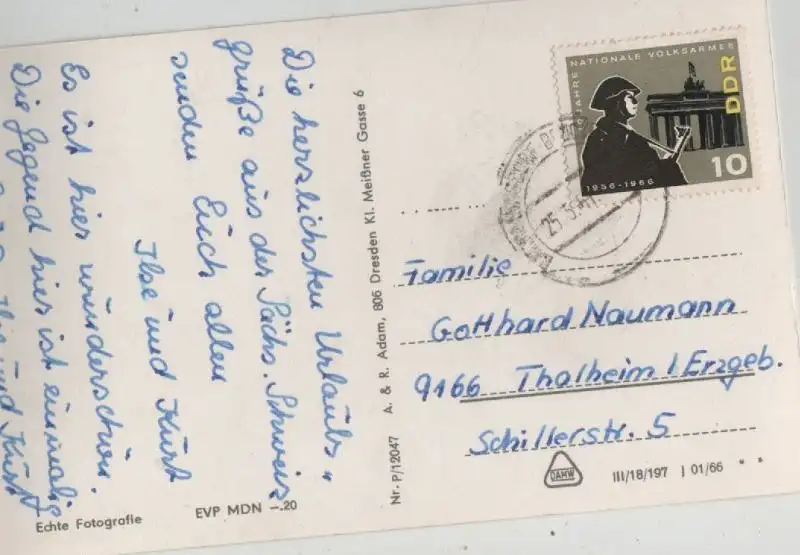 Die herzlichsten Urlaubs„
grüße aus der Sächs. Schweiz
senden Euch allen
Ilse und Kurt
Es ist hier wunderschön.
Die Gegend hier ist einmalig
Ilse und Kurt
Echte Fotografie
EVP MDN –.20
Nr. P/12047 A. & R. Adam, 806 Dresden Kl. Meißner Gasse 6
JAHRE NATIONALE VOLKSARMEE
DDR
1956-1966
10
25.5.
Familie
Gotthard Naumann
9166 Thalheim / Erzgeb.
Schillerstr. 5
DAMW
III/18/197 J 01/66